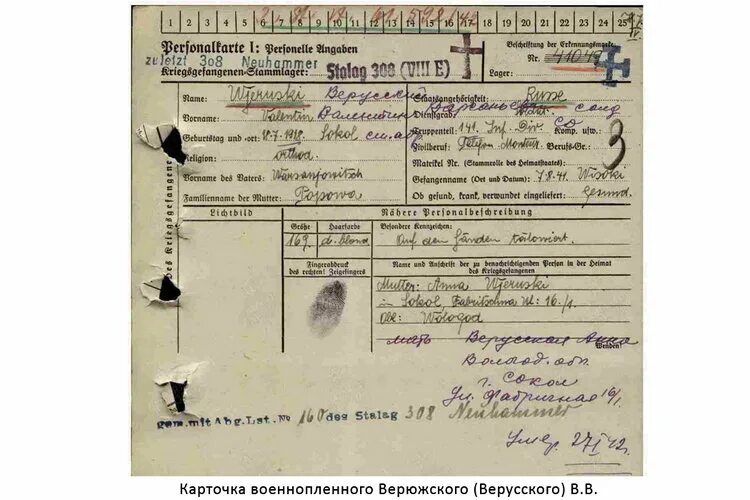 1 2 3 4 5 6 7 8 9 10 11 12 13 14 15 16 17 18 19 20 21 22 23 24 25
Personalkarte I: Personelle Angaben
zuletzt 308 Neuhammer
Kriegsgefangenen-Stammlager: Stalag 308 (VIII E)
Beschriftung der Erkennungsmarke
Nr. 41049
Lager:
Des Kriegsgefangenen
Name: Wjeruski Верусский
Vorname: Valentin Валентин
Geburtstag und -ort: 18.7.1918. Sokol
Religion: orthod.
Vorname des Vaters: Warsanjowitsch
Familienname der Mutter: Popowa
Staatsangehörigkeit: Russe
Dienstgrad: Soldat солд
Truppenteil: 141. Inf. Div. СД Komp. usw.:
Zivilberuf: Telefon Monteur Berufs-Gr.:
3
Matrikel Nr. (Stammrolle des Heimatstaates):
Gefangennahme (Ort und Datum): 7.8.41. Wisoki
Ob gesund, krank, verwundet eingeliefert: Gesund.
Lichtbild
Nähere Personalbeschreibung
Größe Haarfarbe Besondere Kennzeichen:
169. d. blond Auf den Händen tätowiert.
Fingerabdruck
des rechten! Zeigefingers
Name und Anschrift der zu benachrichtigenden Person in der Heimat
des Kriegsgefangenen
Mutter: Anna Wjeruski
in Sokol, Fabritschna Ul: 16/1
Obl: Wologod
мать Верусская Анна
Wenden!
Вологод. обл.
г. Сокол
ул. Фабричная 16/1
gem. mit Abg. Lst. No 160 des Stalag 308 Neuhammer
Умер. 27 I 42.
Карточка военнопленного Верюжского (Верусского) В.В.